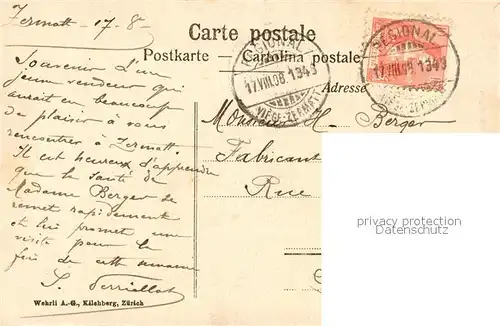 Zermatt 17-8
Carte postale
Postkarte — Cartolina postale
Adresse
REGIONAL
17.VIII.08.1343
VIÈGE-ZERMATT
REGIONAL
17.VIII.08.1343
VIÈGE-ZERMATT
Souvenir d'un
jeune vendeur qui
aurait eu beaucoup
de plaisir à vous
rencontrer à Zermatt.
Il est heureux d'apprendre
que la santé de
Madame Berger se
remet rapidement
et lui promet une
visite pour la
fin de cette semaine
Monsieur H. Berger
Fabricant
Rue
privacy protection
Datenschutz
Wehrli A.-G., Kilchberg, Zürich